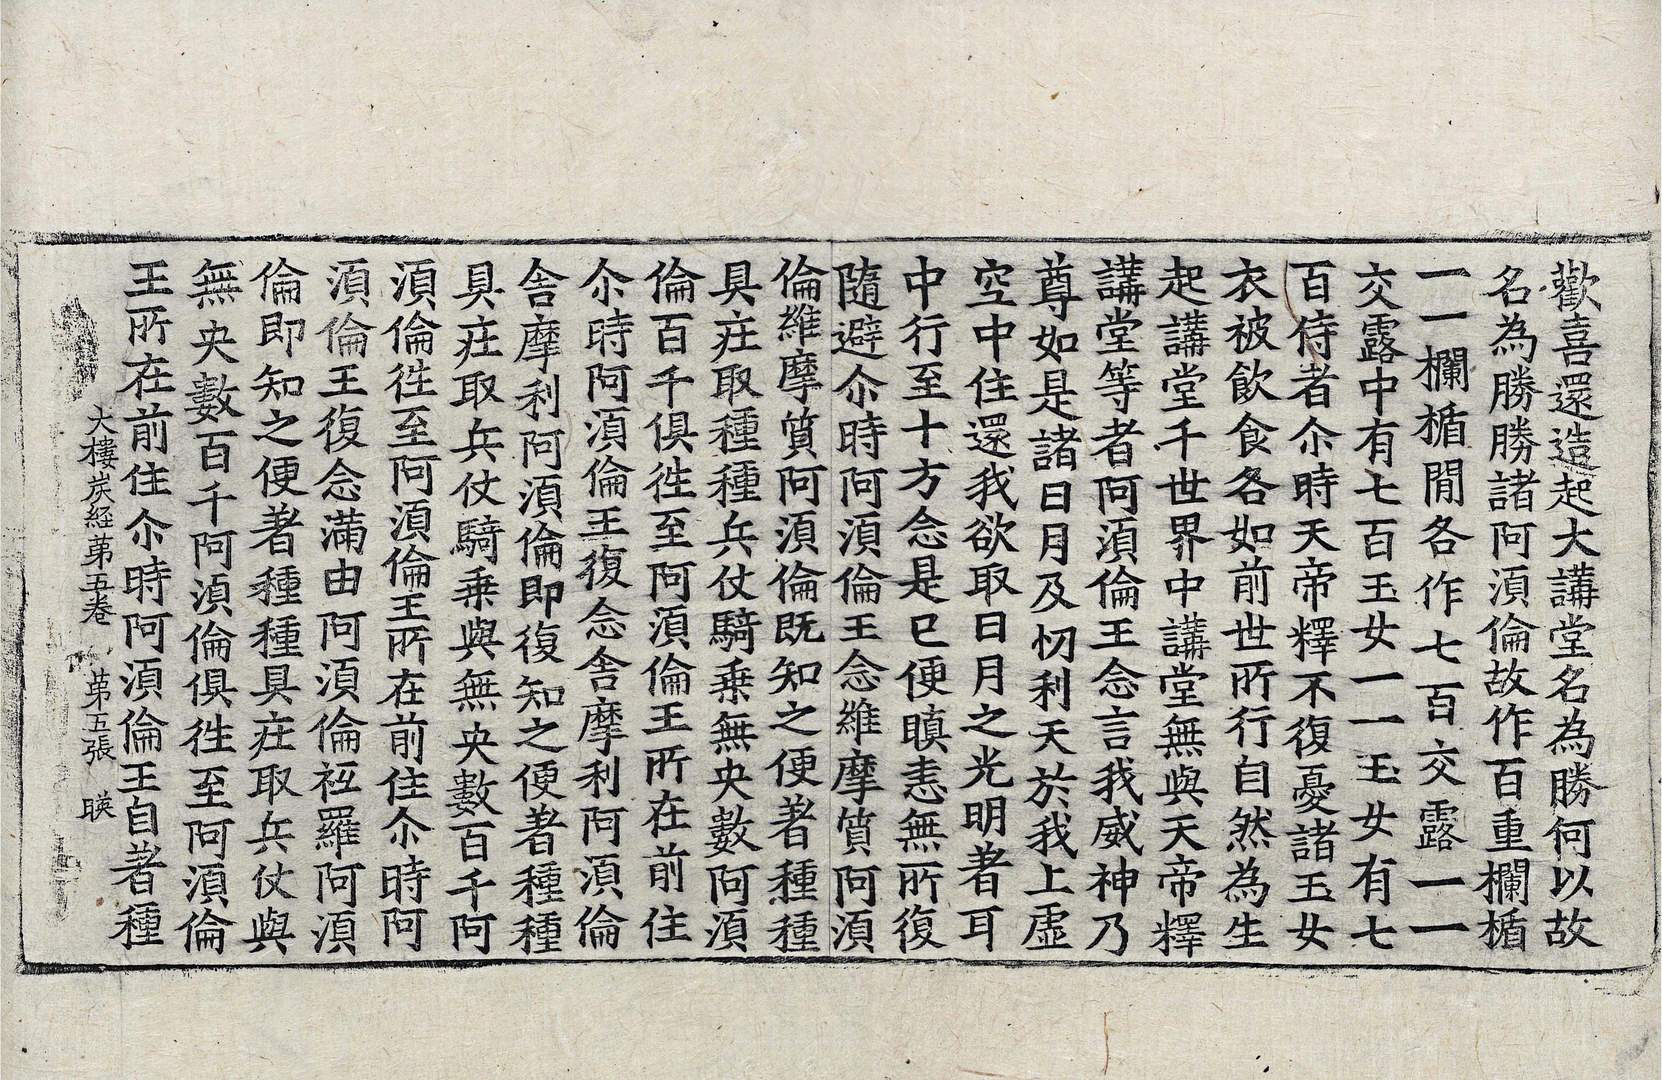 歡喜還造起大講堂名為勝何以故
名為勝勝諸阿湏倫故作百重欄楯
一一欄楯閒各作七百交露一一
交露中有七百玉女一一玉女有七
百侍者尒時天帝釋不復憂諸玉女
衣被飲食各如前世所行自然為生
起講堂千世界中講堂無與天帝釋
講堂等者阿湏倫王念言我威神乃
尊如是諸日月及忉利天於我上虛
空中住還我欲取日月之光明著耳
中行至十方念是已便瞋恚無所復
隨避尒時阿湏倫王念維摩質阿湏
倫維摩質阿湏倫既知之便著種種
具疘取種種兵仗騎乗無央數阿湏
倫百千俱徃至阿湏倫王所在前住
尒時阿湏倫王復念舎摩利阿湏倫
舎摩利阿湏倫即復知之便著種種
具疘取兵仗騎乗與無央數百千阿
湏倫徃至阿湏倫王所在前住尒時阿
湏倫王復念滿由阿湏倫祇羅阿湏
倫即知之便著種種具疘取兵仗與
無央數百千阿湏倫俱徃至阿湏倫
王所在前住尒時阿湏倫王自著種
大樓炭経苐五卷 苐五張 暎